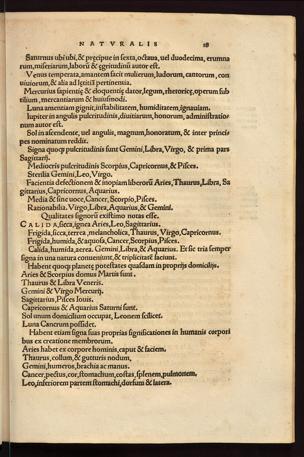 NATVRALIS 18
Saturnus ubi ubi, & præcipue in sexta, octaua, uel duodecima, erumna
rum, miseriarum, laborũ & ęgritudinũ autor est.
Venus temperata, amantem facit mulierum, ludorum, cantorum, con
uiuiorum, & alia ad lętitiã pertinentia.
Mercurius sapientię & eloquentię dator, legum, rhetoricę, operum sub
tilium, mercantiarum & huiusmodi.
Luna amentiam gignit, instabilitatem, humiditatem, ignauiam.
Iupiter in angulis pulcritudinis, diuitiarum, honorum, administratio
num autor est.
Sol in ascendente, uel angulis, magnum, honoratum, & inter princi
pes nominatum reddit.
Signa quoq̃ pulcritudinis sunt Gemini, Libra, Virgo, & prima pars
Sagittarij.
Mediocris pulcritudinis Scorpius, Capricornus, & Pisces.
Sterilia Gemini, Leo, Virgo.
Facientia defectionem & inopiam liberorũ Aries, Thaurus, Libra, Sa
gittarius, Capricornus, Aquarius.
Media & sine uoce, Cancer, Scorpio, Pisces.
Rationabilia. Virgo, Libra, Aquarius, & Gemini.
Qualitates signorũ existimo notas esse.
CALIDA, sicca, ignea Aries, Leo, Sagittarius.
Frigida, sicca, terrea, melancholica, Thaurus, Virgo, Capricornus.
Frigida, humida, & aquosa, Cancer, Scorpius, Pisces.
Calida, humida, aerea. Gemini, Libra, & Aquarius. Et sic tria semper
signa in una natura conueniunt, & triplicitatẽ faciunt.
Habent quoq̃ planetę potestates quasdam in proprijs domicilijs.
Aries & Scorpius domus Martis sunt.
Thaurus & Libra Veneris.
Gemini & Virgo Mercurij.
Sagittarius, Pisces Iouis.
Capricornus & Aquarius Saturni sunt.
Sol unum domicilium occupat, Leonem scilicet.
Luna Cancrum possidet.
Habent etiam signa suas proprias significationes in humanis corpori
bus ex creatione membrorum.
Aries habet ex corpore hominis, caput & faciem.
Thaurus, collum, & gutturis nodum,
Gemini, humeros, brachia ac manus.
Cancer, pectus, cor, stomachum, costas, splenem, pulmonem.
Leo, inferiorem partem stomachi, dorsum & latera.